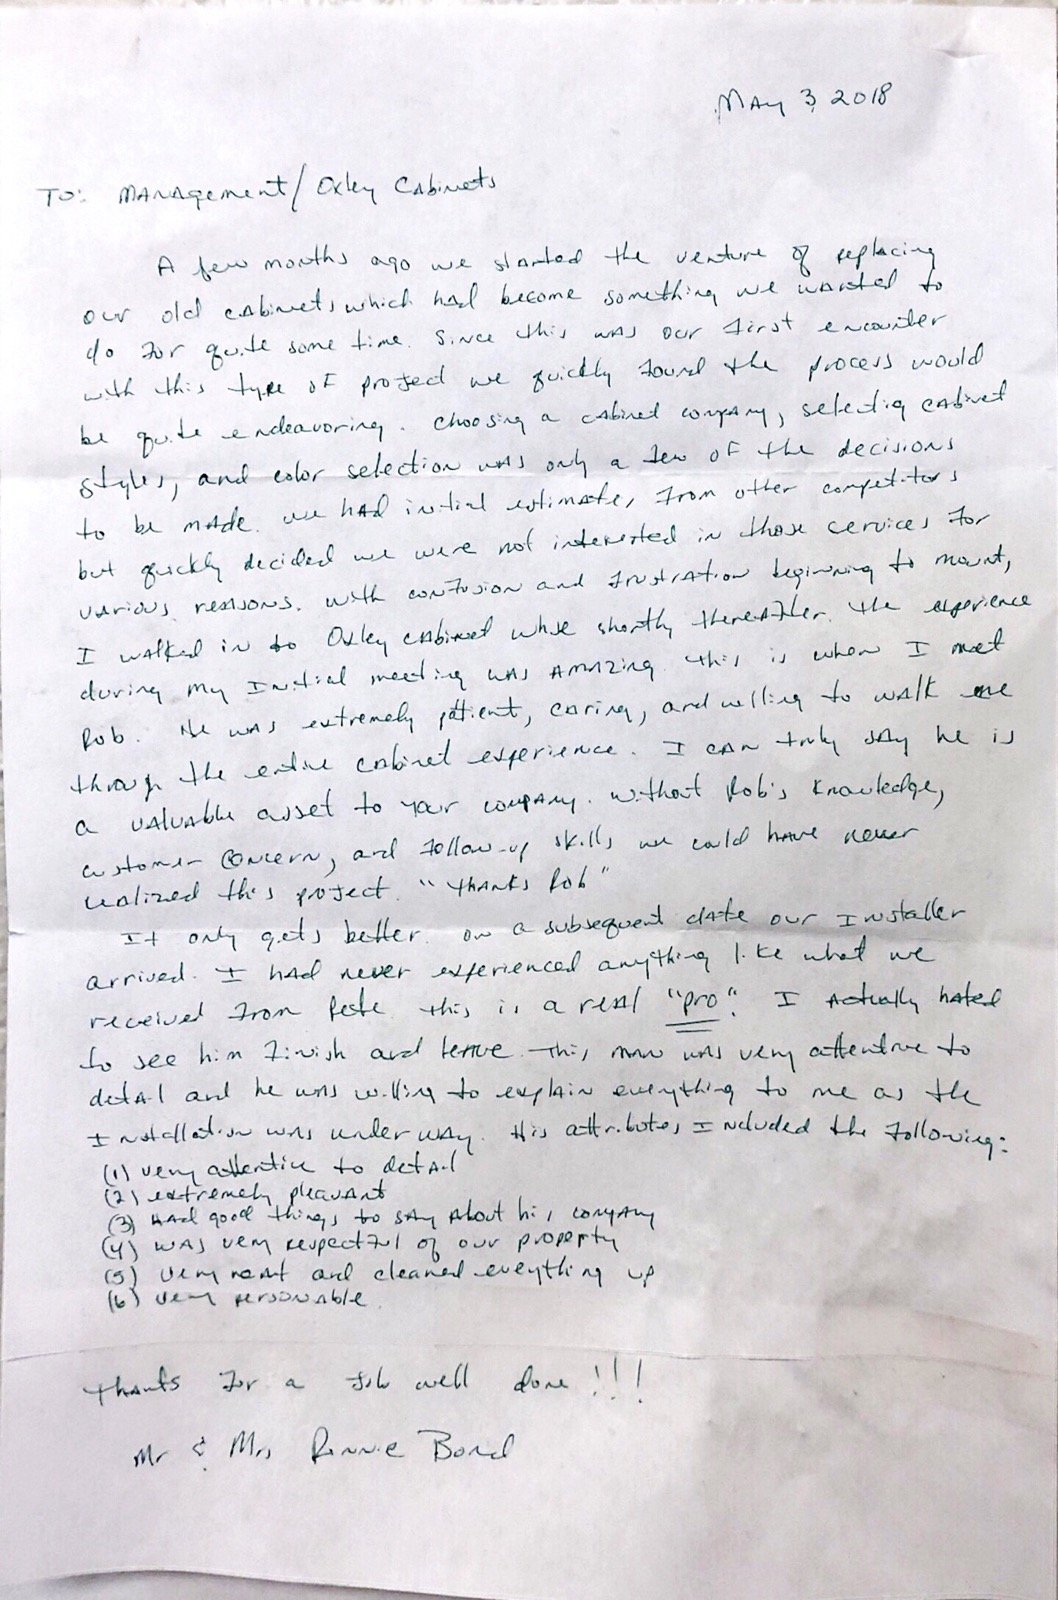 May 3, 2018
To: Management/Oxley Cabinets
A few months ago we started the venture of replacing
our old cabinets which had become something we wanted to
do for quite some time. Since this was our first encounter
with this type of project we quickly found the process would
be quite endeavoring. Choosing a cabinet company, selecting cabinet
styles, and color selection was only a few of the decisions
to be made. We had initial estimates from other competitors
but quickly decided we were not interested in those services for
various reasons. With confusion and frustration beginning to mount,
I walked in to Oxley Cabinet whse shortly thereafter. The experience
during my initial meeting was amazing. This is when I met
Rob. He was extremely patient, caring, and willing to walk me
through the entire cabinet experience. I can truly say he is
a valuable asset to your company. Without Rob's knowledge,
customer concern, and follow-up skills we could have never
realized this project. "Thanks Rob"
It only gets better. On a subsequent date our installer
arrived. I had never experienced anything like what we
received from Pete. This is a real "pro". I actually hated
to see him finish and leave. This man was very attentive to
detail and he was willing to explain everything to me as the
installation was under way. His attributes included the following:
(1) very attentive to detail
(2) extremely pleasant
(3) had good things to say about his company
(4) was very respectful of our property
(5) very neat and cleaned everything up
(6) very personable.
Thanks for a job well done!!!
Mr & Mrs Ronnie Bond